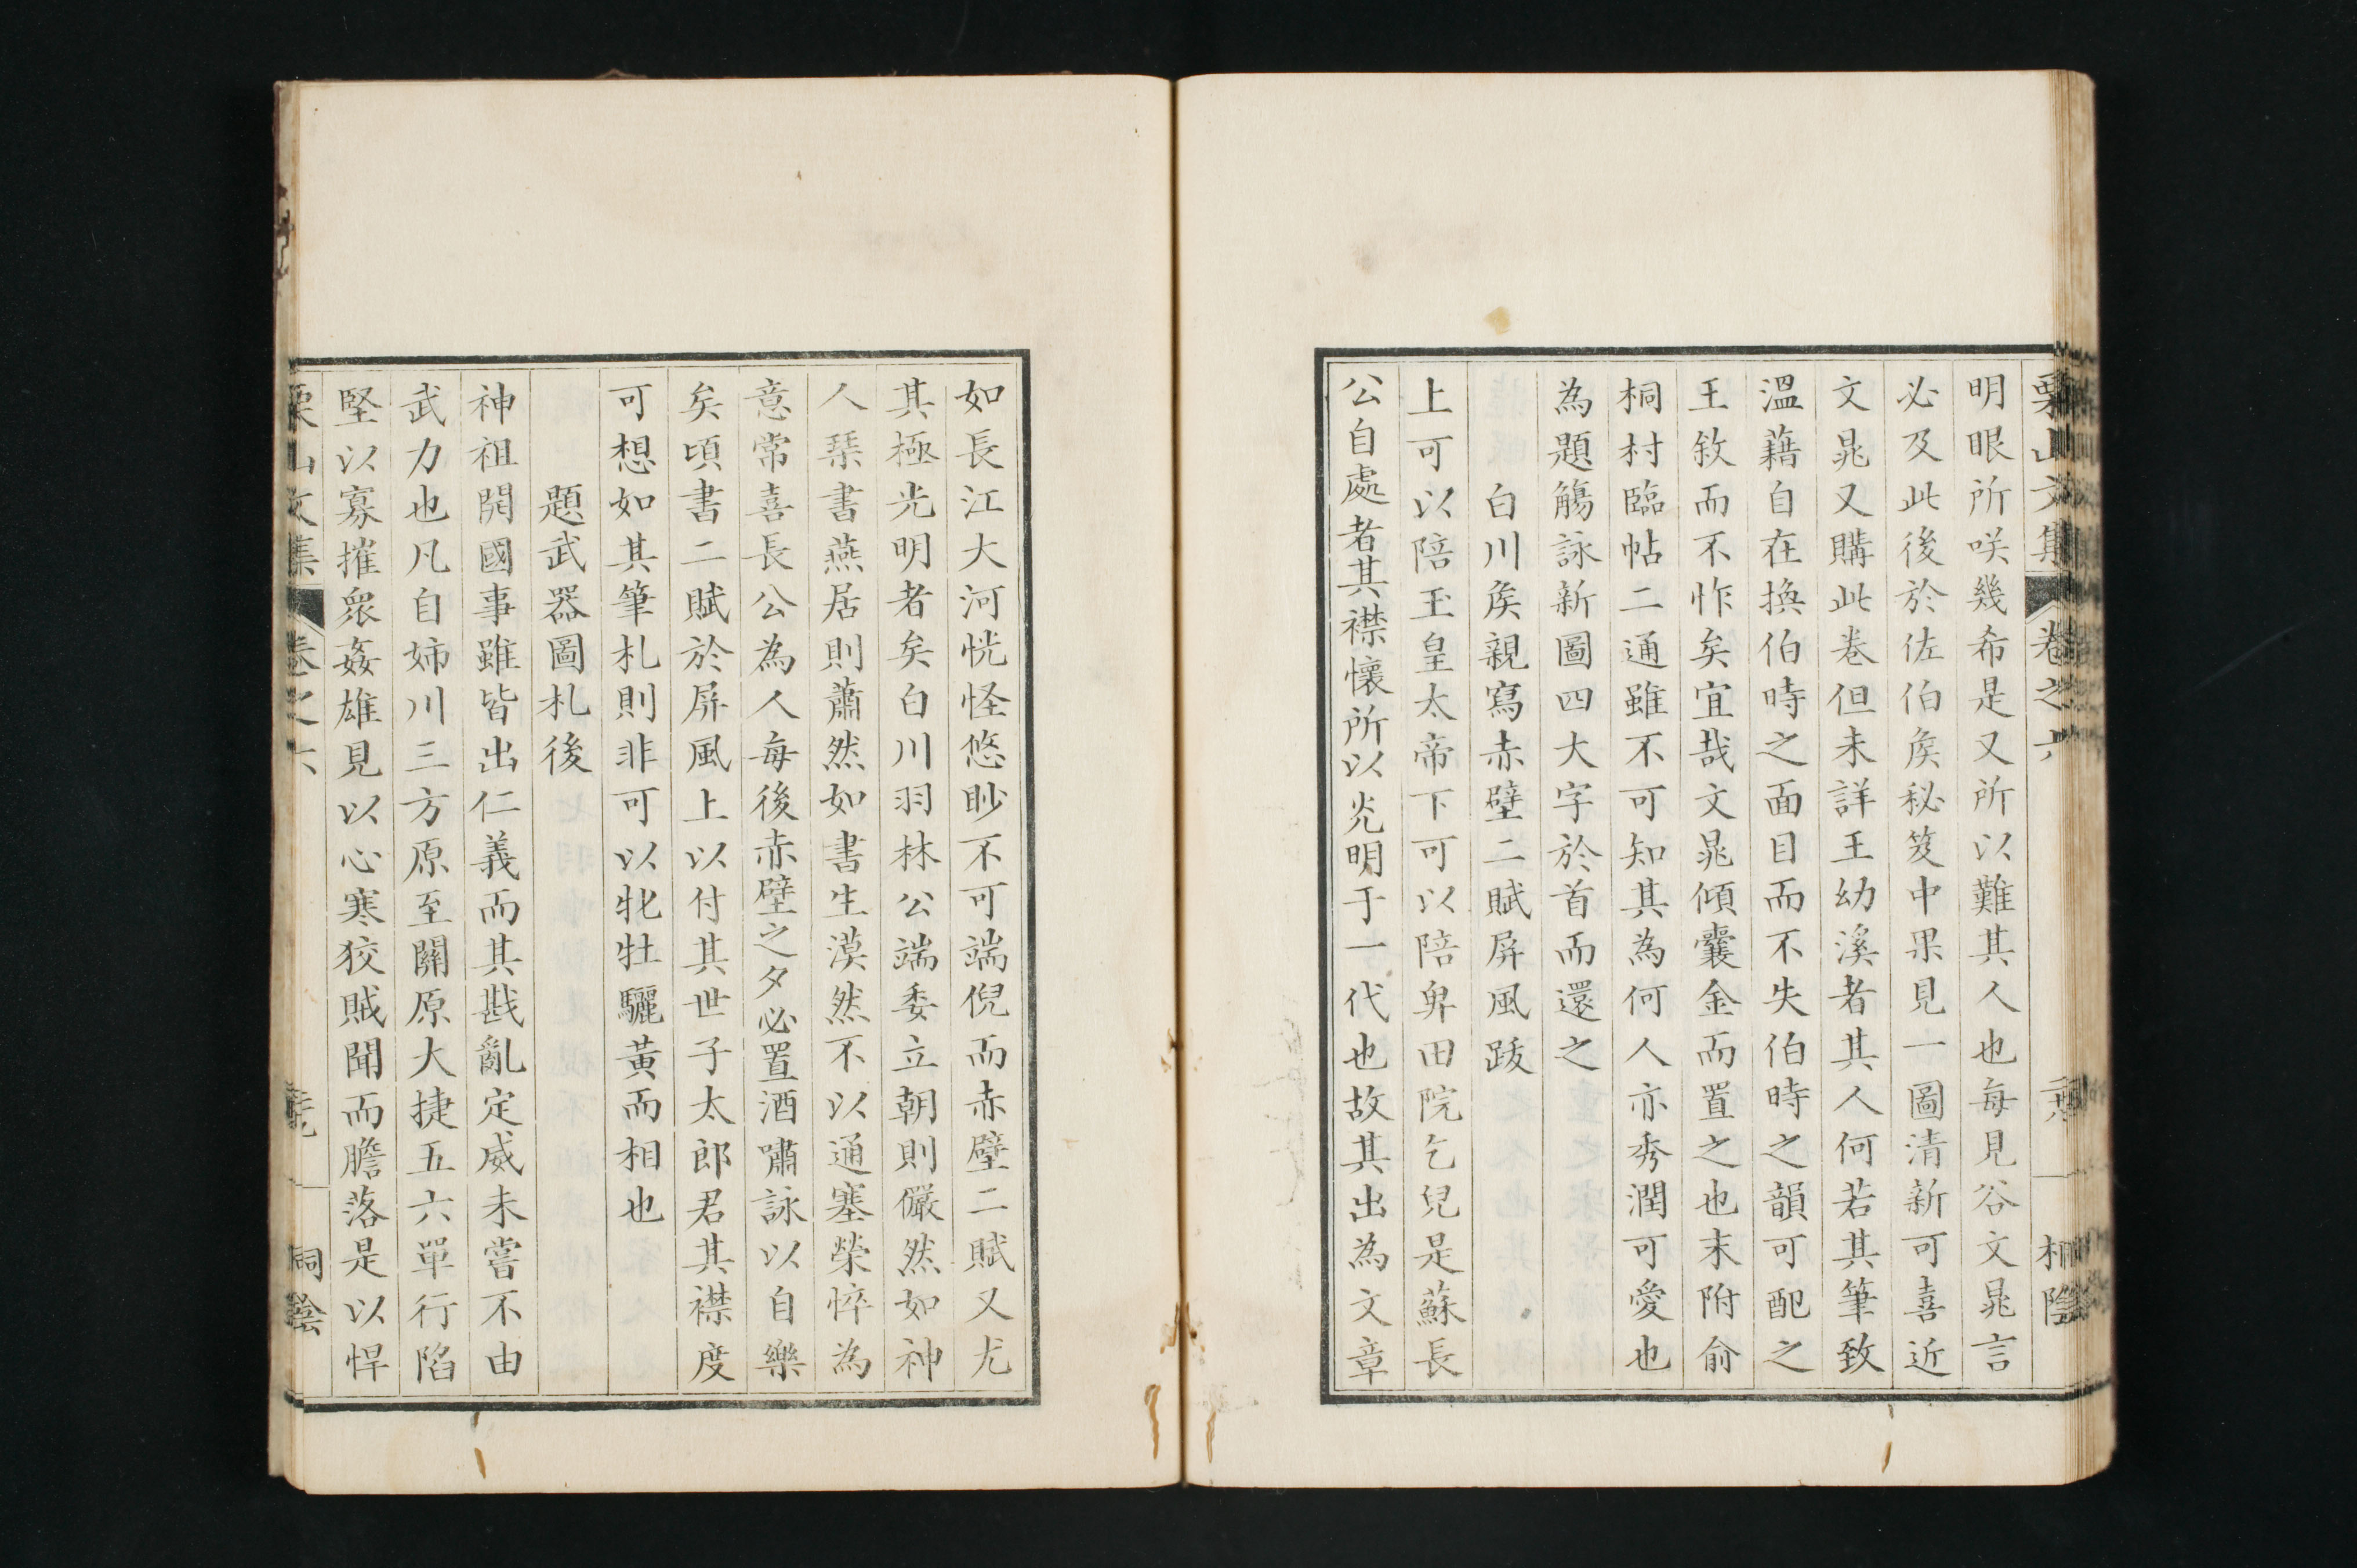 栗山文集 卷之六 桐陰
明眼所咲幾希是又所以難其人也每見谷文晁言
必及此後於佐伯矦秘笈中果見一圖清新可喜近
文晁又購此卷但未詳王幼溪者其人何若其筆致
溫藉自在換伯時之面目而不失伯時之韻可配之
王敘而不怍矣宜哉文晁傾囊金而置之也末附俞
桐村臨帖二通雖不可知其為何人亦秀潤可愛也
為題觴詠新圖四大字於首而還之
白川矦親寫赤壁二賦屏風跋
上可以陪玉皇太帝下可以陪卑田院乞兒是蘇長
公自處者其襟懷所以光明于一代也故其出為文章
如長江大河恍怪悠眇不可端倪而赤壁二賦又尤
其極光明者矣白川羽林公端委立朝則儼然如神
人琹書燕居則蕭然如書生漠然不以通塞榮悴為
意常喜長公為人每後赤壁之夕必置酒嘯詠以自樂
矣頃書二賦於屏風上以付其世子太郎君其襟度
可想如其筆札則非可以牝牡驪黃而相也
題武器圖札後
神祖開國事雖皆出仁義而其戡亂定威未嘗不由
武力也凡自姉川三方原至關原大捷五六單行陷
堅以寡摧衆姦雄見以心寒狡賊聞而膽落是以悍
栗山文集 卷之六 桐陰